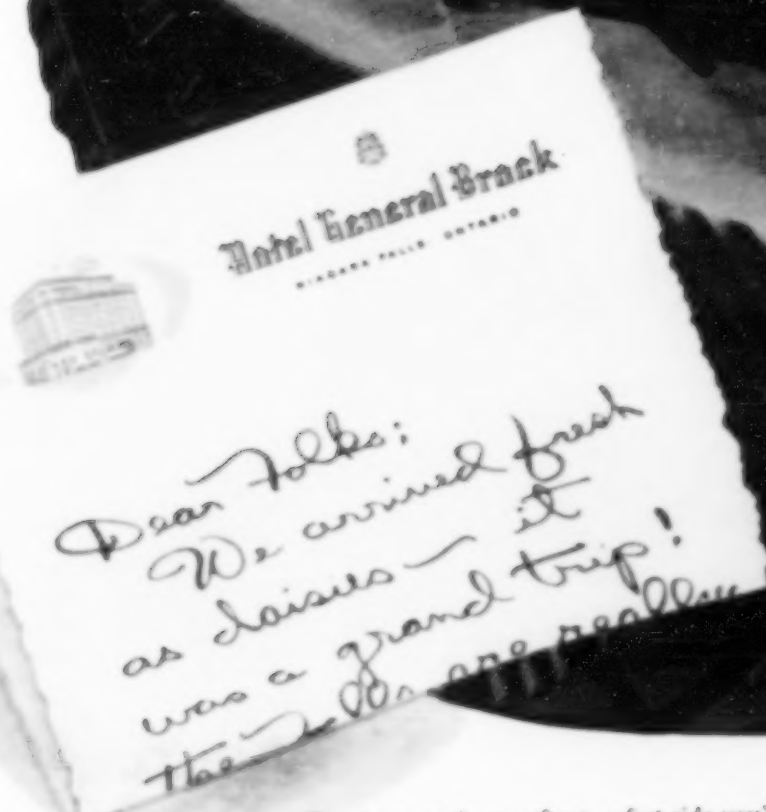 Hotel General Brock
NIAGARA FALLS ONTARIO
Dear Folks:
We arrived fresh
as daisies — it
was a grand trip!
The Falls are really